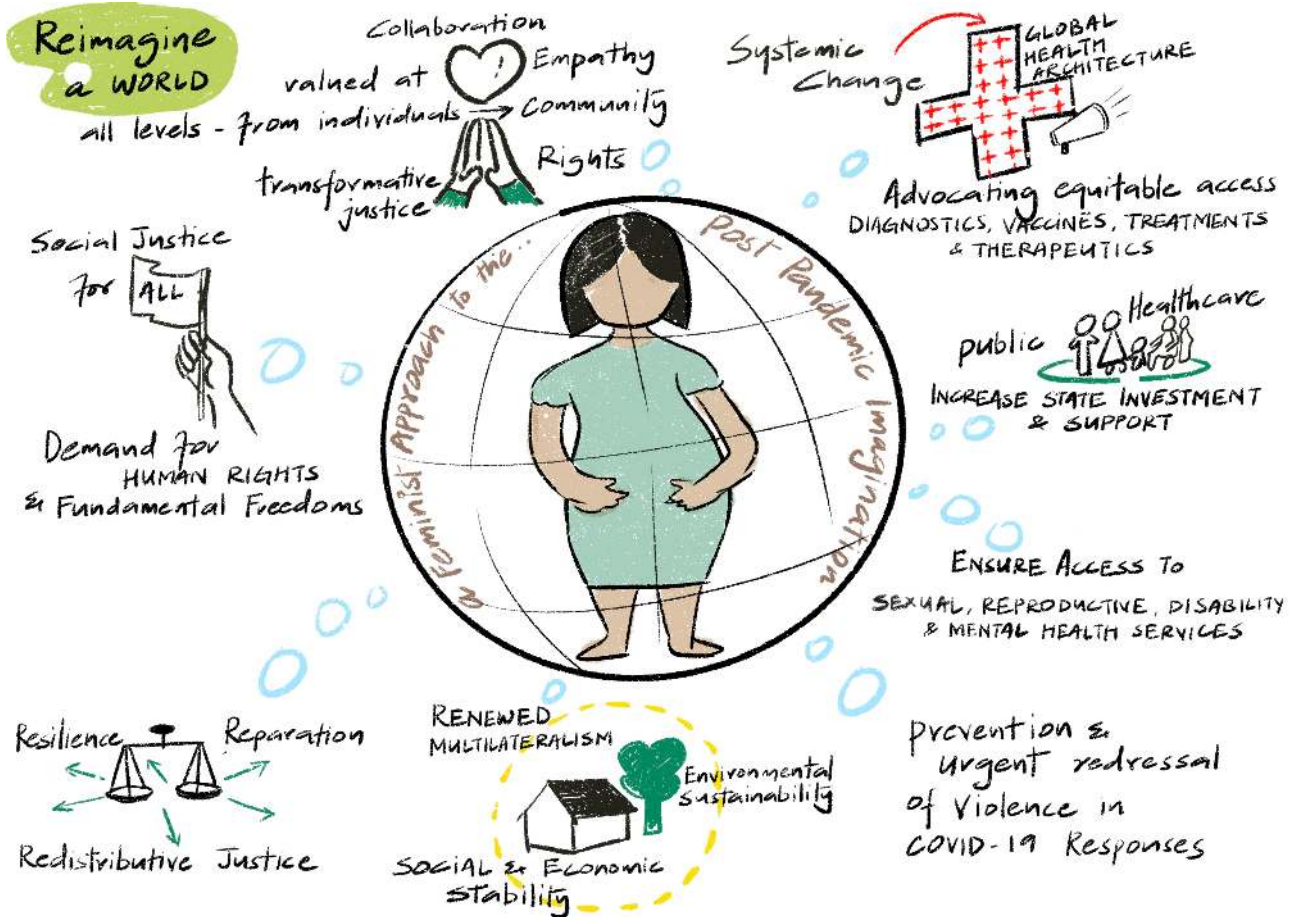 Reimagine
a WORLD
Collaboration
valued at
Empathy
all levels - from individuals → Community
Rights
transformative
justice
Systemic
Change
GLOBAL
HEALTH
ARCHITECTURE
Advocating equitable access
DIAGNOSTICS, VACCINES, TREATMENTS
& THERAPEUTICS
Social Justice
for ALL
Demand for
HUMAN RIGHTS
& Fundamental Freedoms
a Feminist Approach to the...
Post Pandemic Imagination
public Healthcare
INCREASE STATE INVESTMENT
& SUPPORT
ENSURE ACCESS TO
SEXUAL, REPRODUCTIVE, DISABILITY
& MENTAL HEALTH SERVICES
Resilience
Reparation
Redistributive Justice
RENEWED
MULTILATERALISM
Environmental
Sustainability
SOCIAL & Economic
Stability
prevention &
urgent redressal
of Violence in
COVID-19 Responses